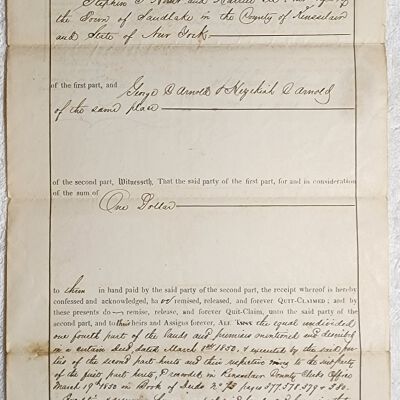 Stephen and of
the Town of Sandlake in the County of Rensselaer
and State of New York
of the first part, and George D Arnold & Hezekiah D Arnold
of the same place
of the second part, Witnesseth, That the said party of the first part, for and in consideration
of the sum of One Dollar
to them in hand paid by the said party of the second part, the receipt whereof is hereby
confessed and acknowledged, ha ve remised, released, and forever QUIT-CLAIMED; and by
these presents do remise, release, and forever Quit-Claim, unto the said party of the second
part, and to their heirs and Assigns forever, ALL the equal undivided
one fourth part of the lands and premises mentioned and described
in a certain deed dated March 1850, executed by the said par
ties of the second part hereto and their wives to the said party
of the first part hereto, & recorded in Rensselaer County Clerks Office
March 19th 1850 in Book of Deeds No 73 pages 577 578 579 & 580.